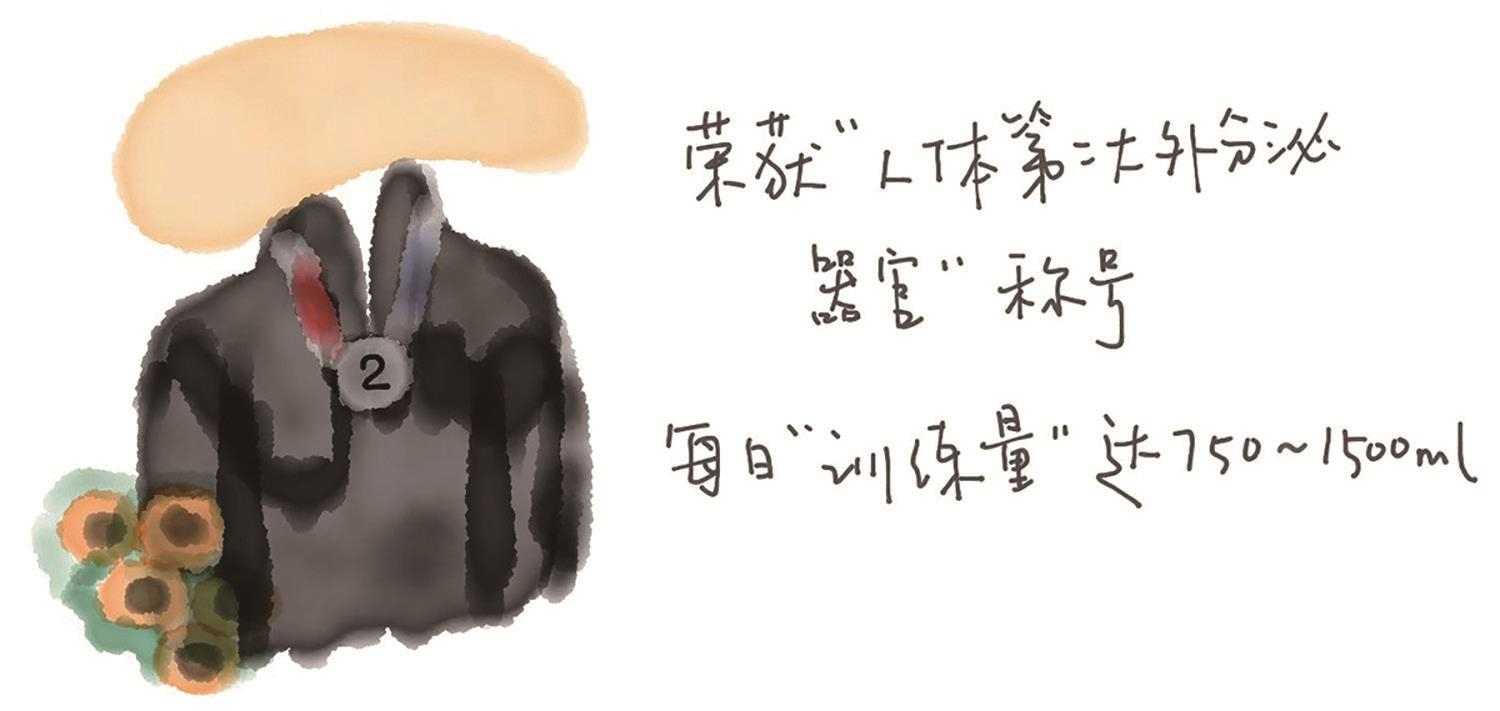 2
荣获“人体第二大外分泌
器官”称号
每日“训练量”达750~1500ml